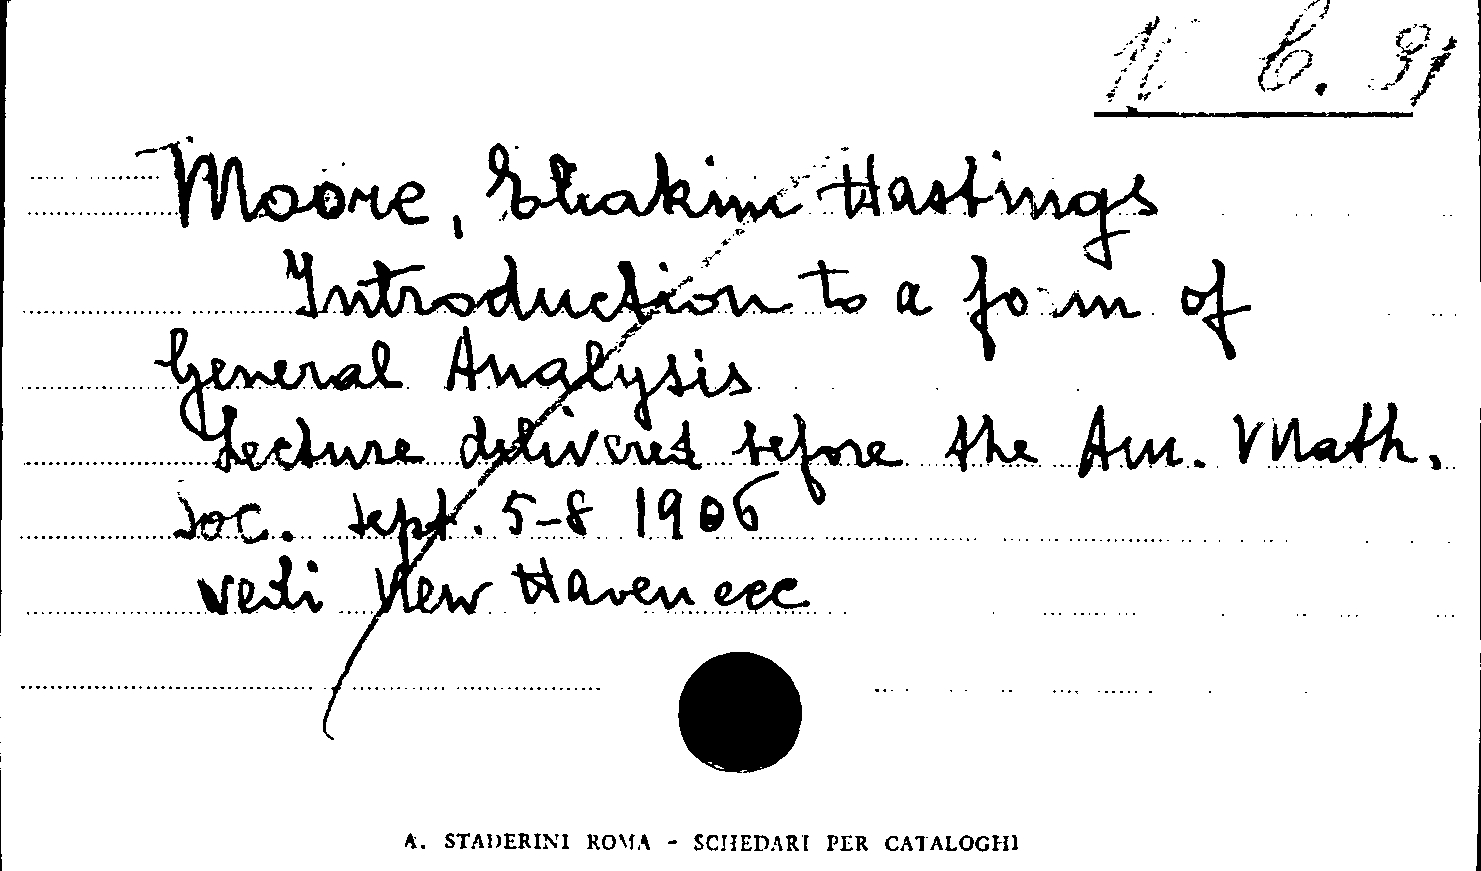 C. 31
Moore, Eliakim Hastings
Introduction to a form of
General Analysis
Lecture delivered before the Am. Math.
Soc. Sept. 5-8 1906
vedi New Haven ecc
A. STADERINI ROMA - SCHEDARI PER CATALOGHI